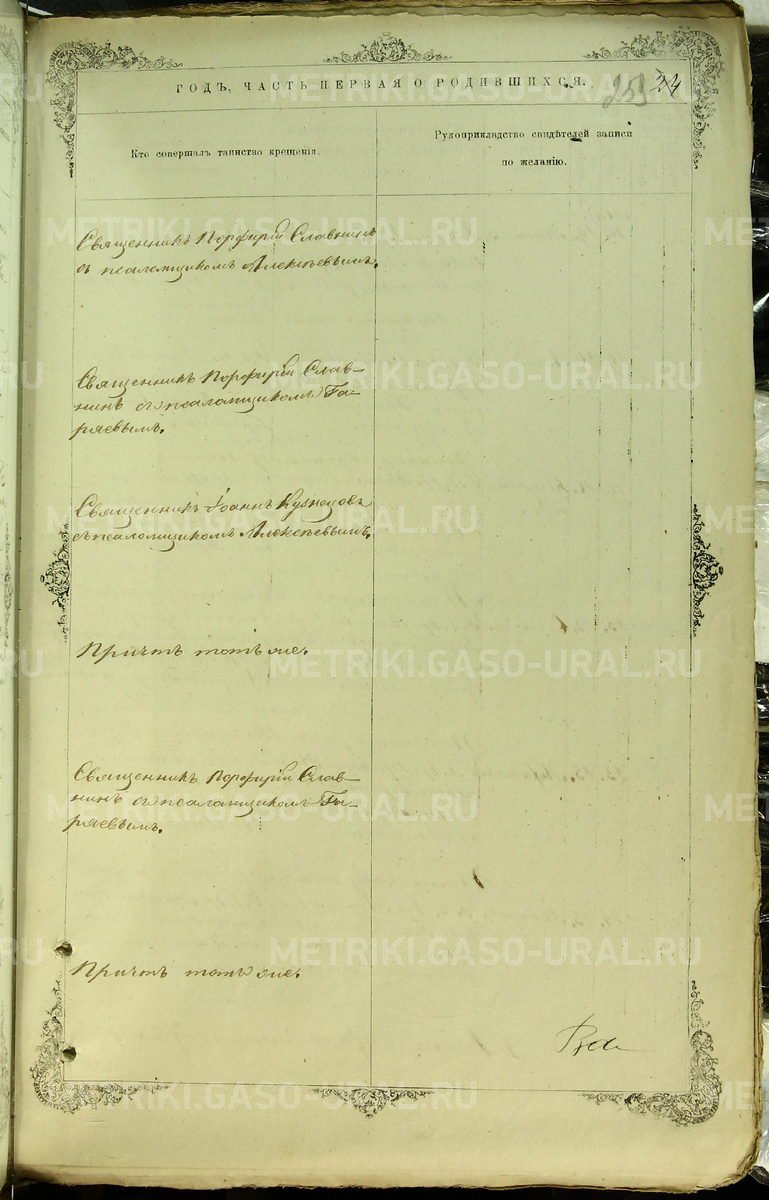 ГОДЪ, ЧАСТЬ ПЕРВАЯ О РОДИВШИХСЯ.
259 24
Кто совершалъ таинство крещенія.
Рукоприкладство свидѣтелей записи
по желанію.
Священникъ Порфирій Славнинъ
съ псаломщикомъ Алексѣевымъ.
Священникъ Порфирій Слав-
нинъ съ псаломщикомъ Га-
ряевымъ.
Священникъ Іоаннъ Кузнецовъ
съ псаломщикомъ Алексѣевымъ.
Причтъ тотъ же.
Священникъ Порфирій Слав-
нинъ съ псаломщикомъ Га-
ряевымъ.
Причтъ тотъ же.
METRIKI.GASO-URAL.RU